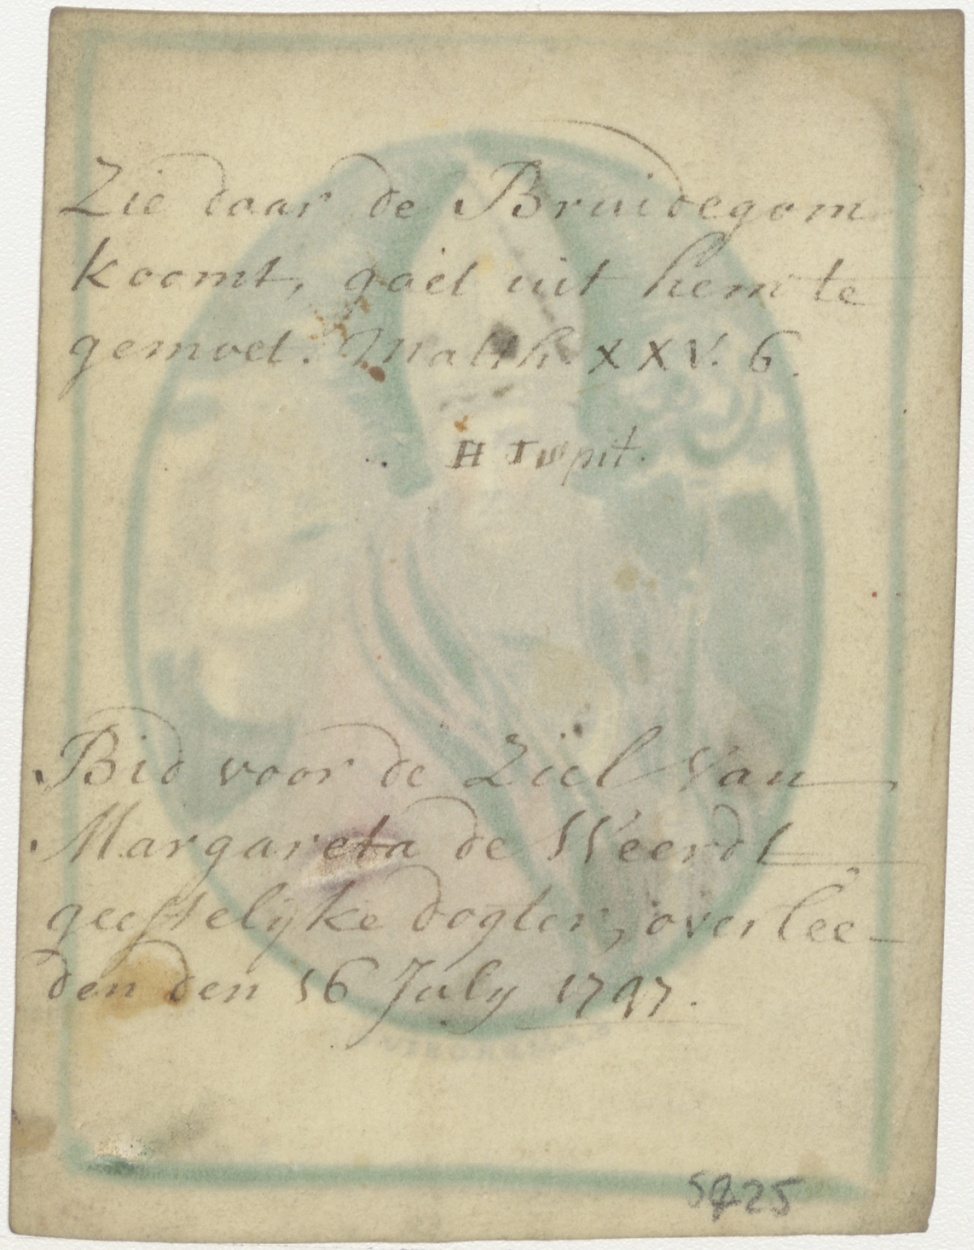 Zie daar de Bruidegom
koomt, gaet uit hem te
gemoet. Matth. XXV. 6.
Bid voor de Ziel van
Margareta de Weerdt
geestelyke dogter, overlee-
den den 16 July 1797.
5425